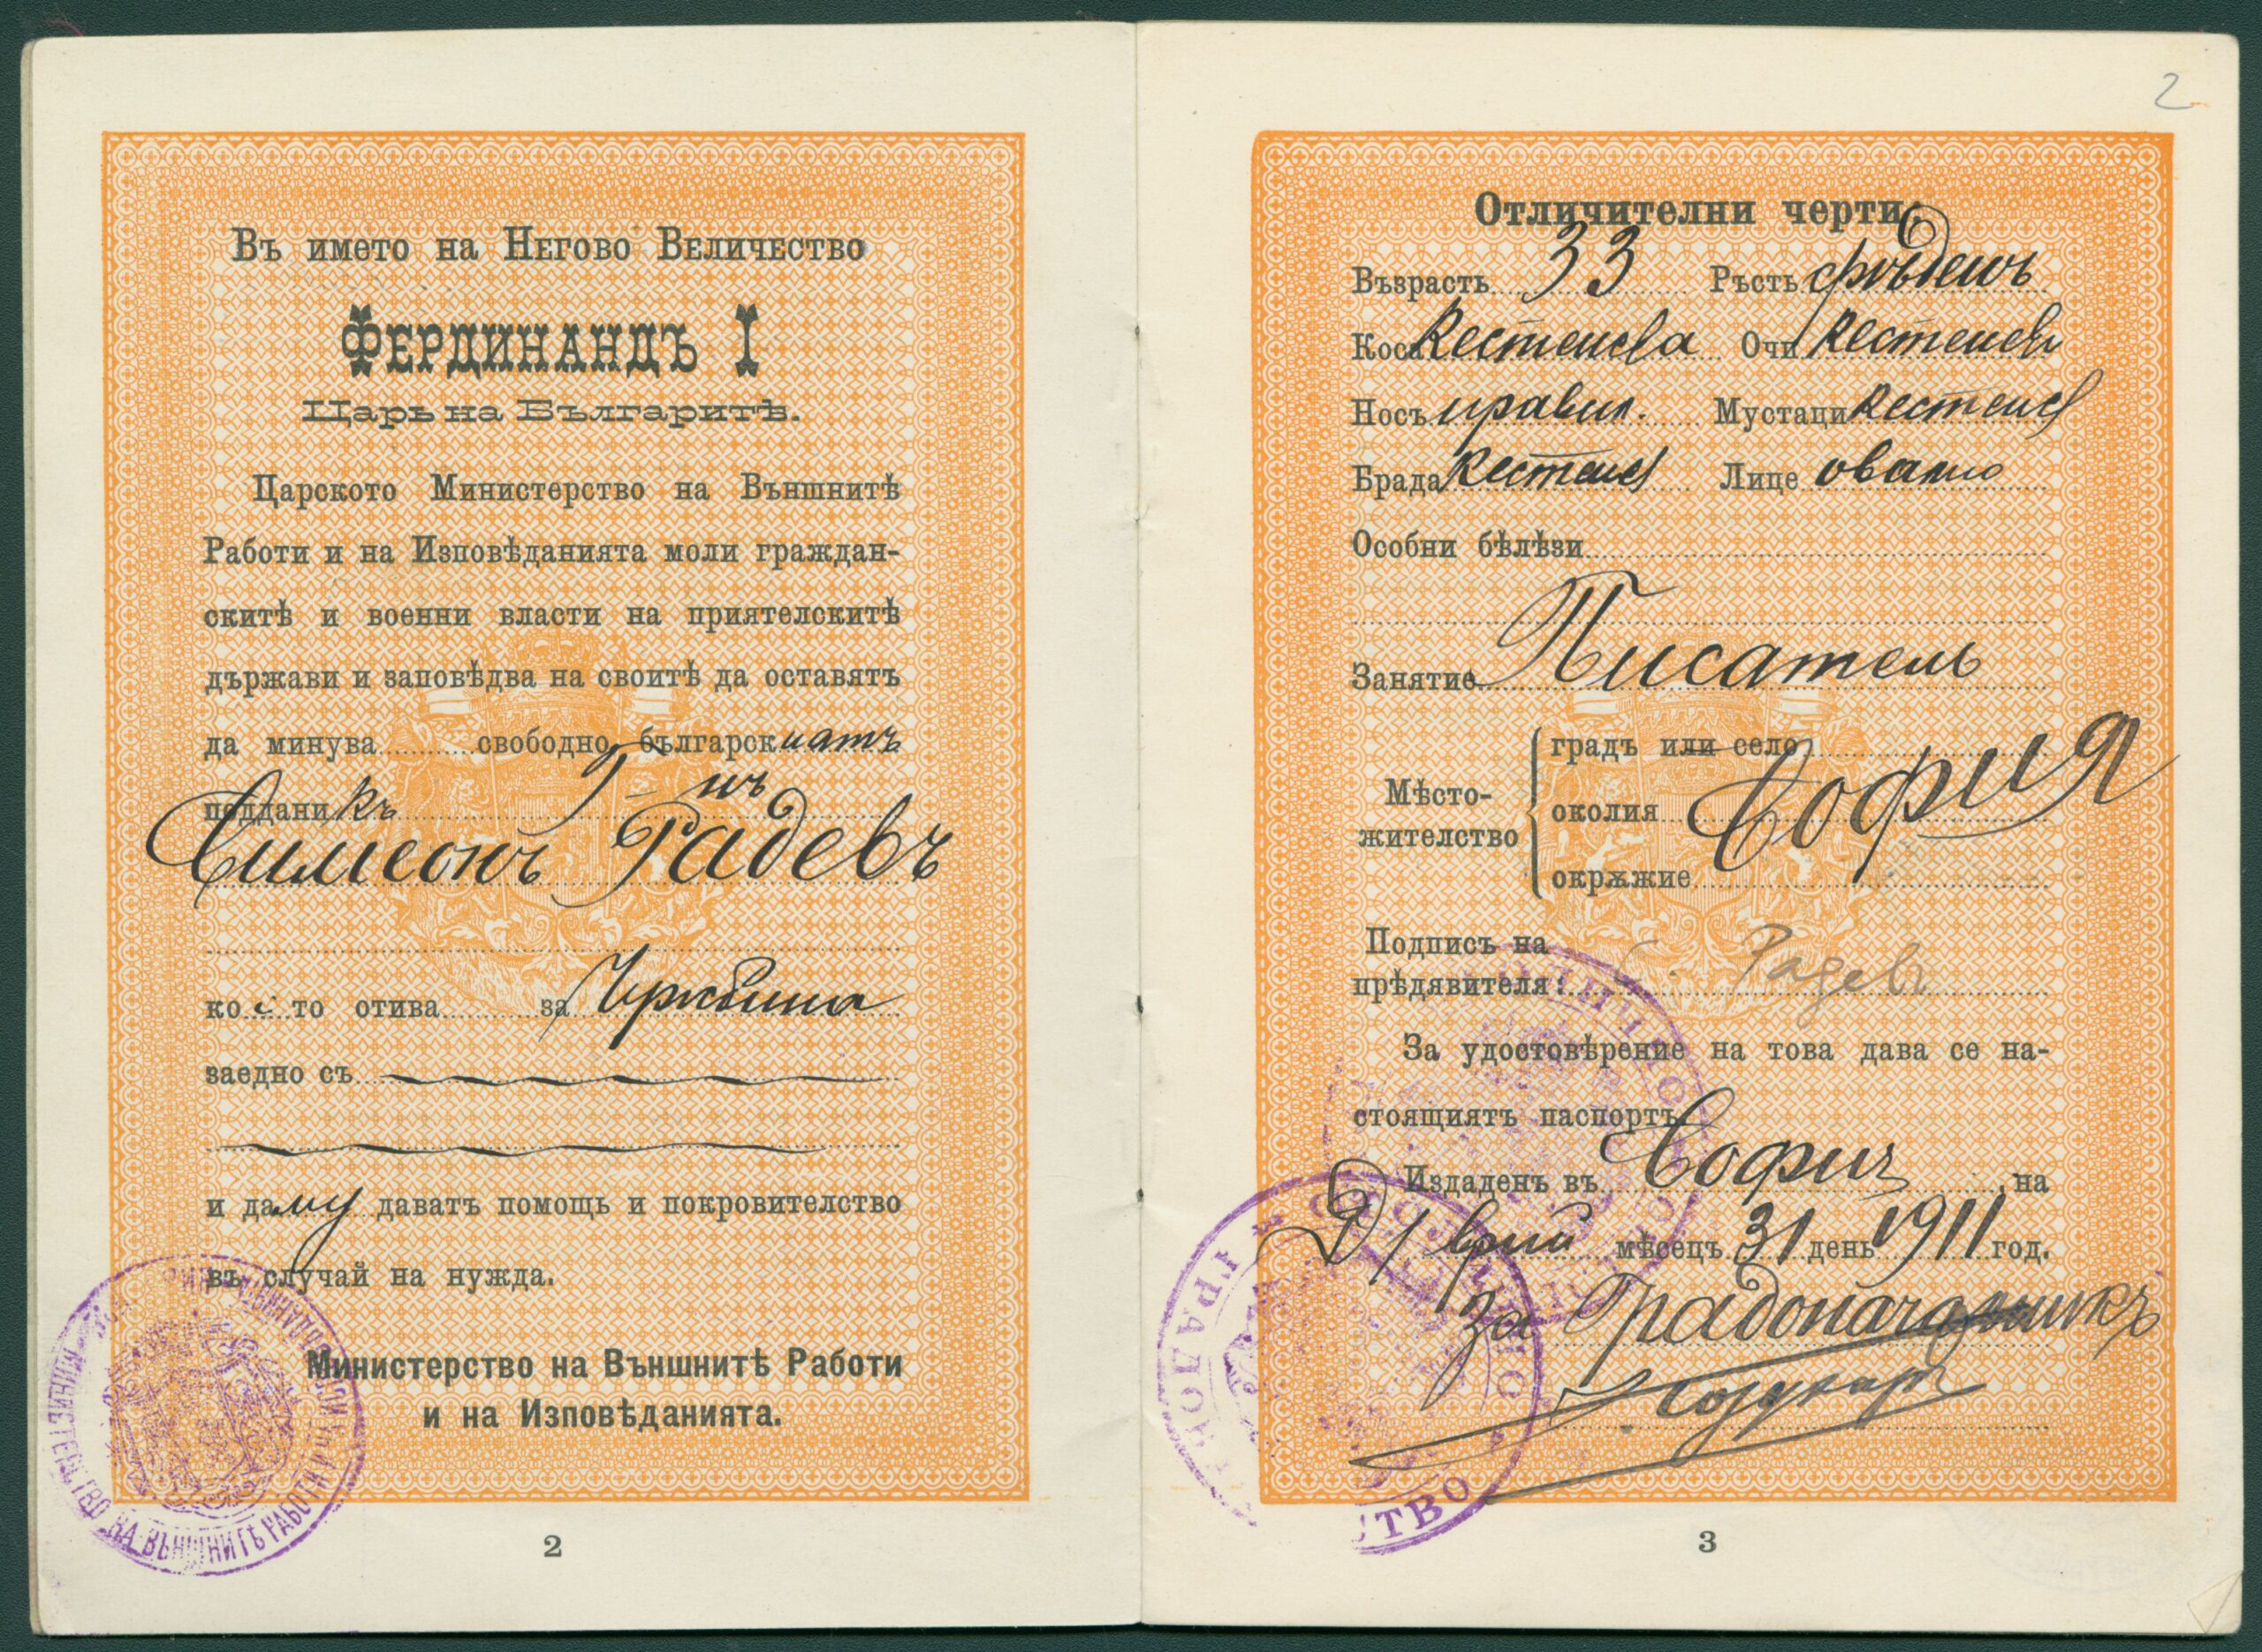 Въ името на Негово Величество
Фердинандъ I
Царь на Българитѣ.
Царското Министерство на Външнитѣ
Работи и на Изповѣданията моли граждан-
скитѣ и военни власти на приятелскитѣ
държави и заповѣдва на своитѣ да оставятъ
да минува свободно българскиятъ
подданикъ Г-нъ
Симеонъ Радевъ
който отива за
заедно съ
и да му даватъ помощь и покровителство
въ случай на нужда.
Министерство на Външнитѣ Работи
и на Изповѣданията.
МИНИСТЕРСТВО НА ВЪНШНИТѢ РАБОТИ И НА
2
2
Отличителни черти:
Възрасть 33 Ръсть срѣденъ
Коса Кестенева Очи Кестенев
Носъ правил. Мустаци Кестенев
Брада Кестенев Лице овално
Особни бѣлѣзи
Занятие Писатель
Мѣсто-
жителство
градъ или село
околия София
окрѫжие
Подпись на
прѣдявителя: С. Радевъ
За удостовѣрение на това дава се на-
стоящиятъ паспортъ
Издаденъ въ София на
мѣсецъ 31 день 1911 год.
За Градоначалникъ
ГРАДО
СТВО
3